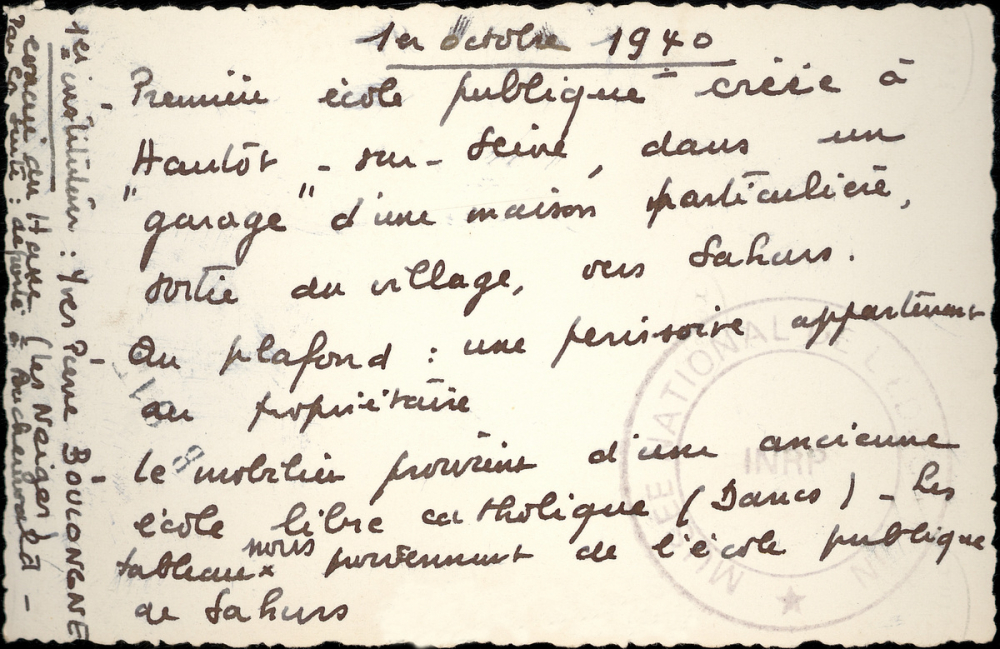 1er octobre 1940
- Première école publique créée à
Hautôt-sur-Seine, dans un
"garage" d'une maison particulière,
sortie du village, vers Sahurs.
- Au plafond : une périssoire appartenant
au propriétaire
- Le mobilier provient d'une ancienne
école libre catholique (Dames) - Les
tableaux noirs proviennent de l'école publique
de Sahurs
1er instituteur : Yves Pierre BOULONGNE
évacué du Havre (les Neiges) -
Par la suite : déporté à Buchenwald -
MUSÉE NATIONAL DE L'ÉDUCATION
INRP